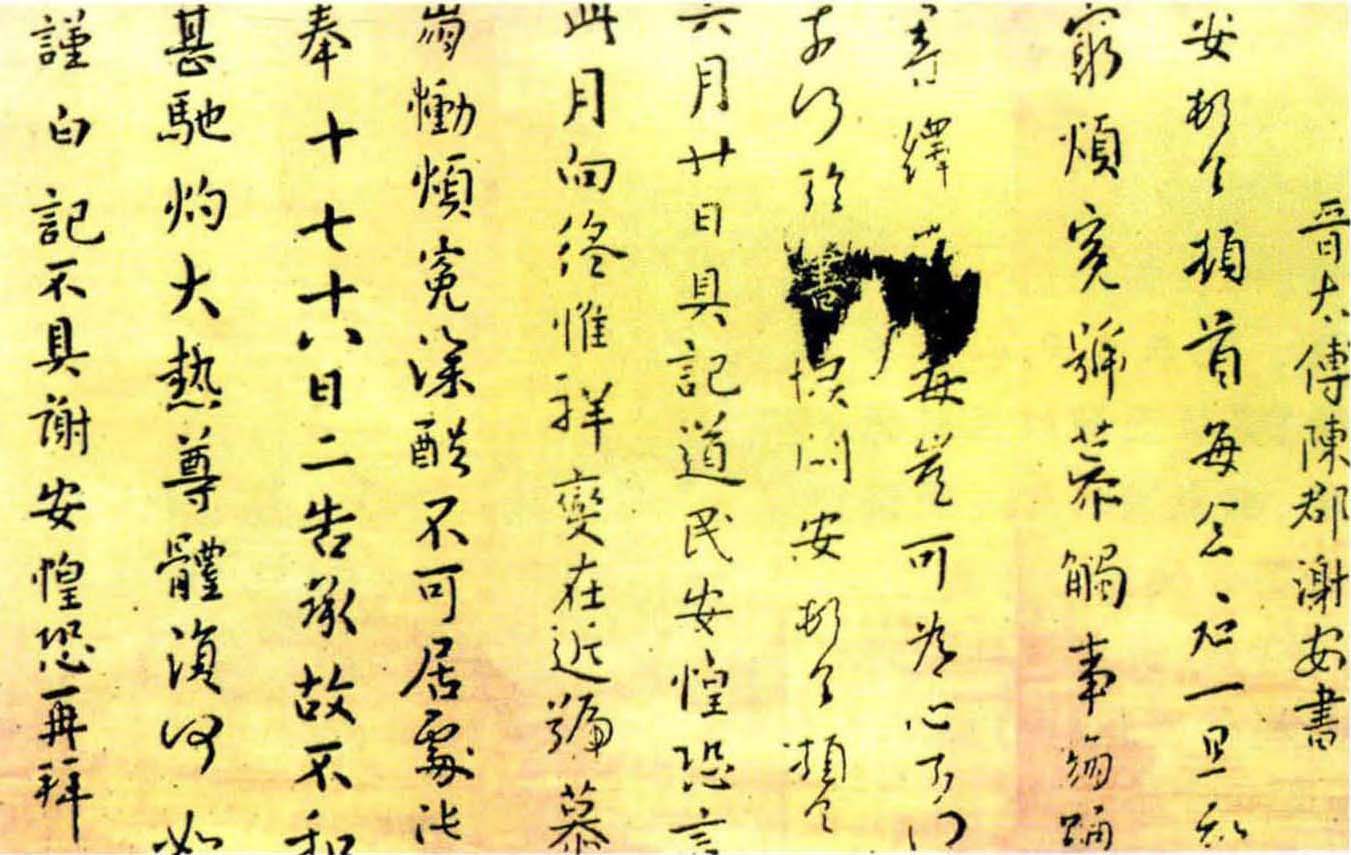 晉太傅陳郡謝安書
安頓首頓首每念君一旦知
窮煩冤號慕觸事崩踊
尋繹荼毒豈可為心奈何
書惋悶安頓首頓首
六月廿日具記道民安惶恐言
此月向終惟祥變在近號慕
崩慟煩冤深酷不可居處比
奉十七十八日二告承故不和
甚馳灼大熱尊體復何如
謹白記不具謝安惶恐再拜